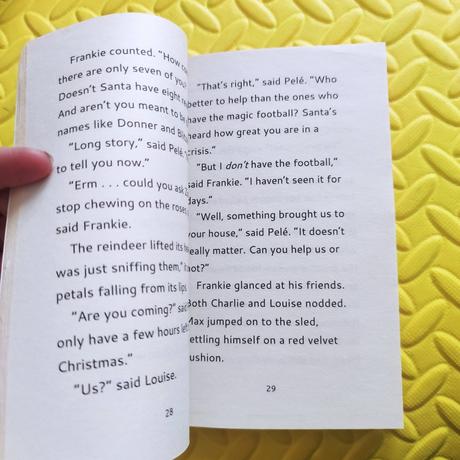 Frankie counted. "How
there are only seven of you?
Doesn't Santa have eight
And aren't you meant to be
names like Donner and
"Long story," said Pelé.
to tell you now."
"Erm . . . could you ask
stop chewing on the roses,
said Frankie.
The reindeer lifted its
was just sniffing them,"
petals falling from its lips.
"Are you coming?"
only have a few hours
Christmas."
"Us?" said Louise.
28
"That's right," said Pelé. "Who
better to help than the ones who
have the magic football? Santa's
heard how great you are in a
crisis."
"But I don't have the football,"
said Frankie. "I haven't seen it for
days."
"Well, something brought us to
your house," said Pelé. "It doesn't
really matter. Can you help us or
not?"
Frankie glanced at his friends.
Both Charlie and Louise nodded.
Max jumped on to the sled,
settling himself on a red velvet
cushion.
29